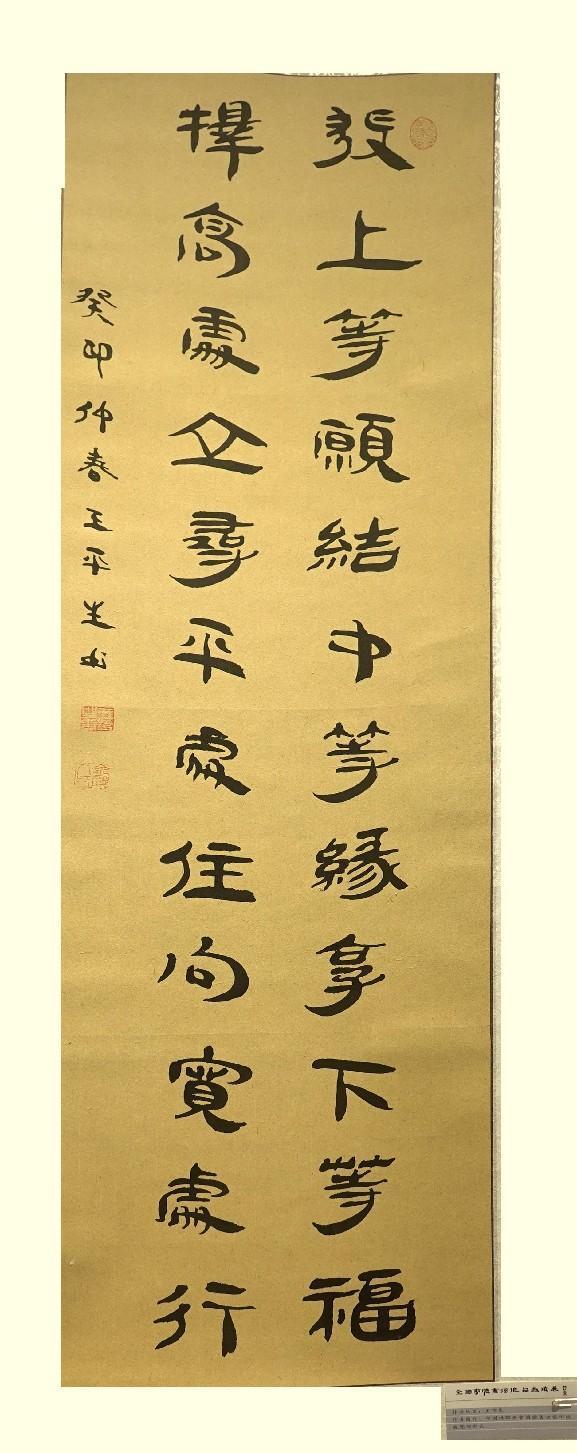 發上等願結中等緣享下等福
擇高處立尋平處住向寬處行
癸卯仲春王平生书